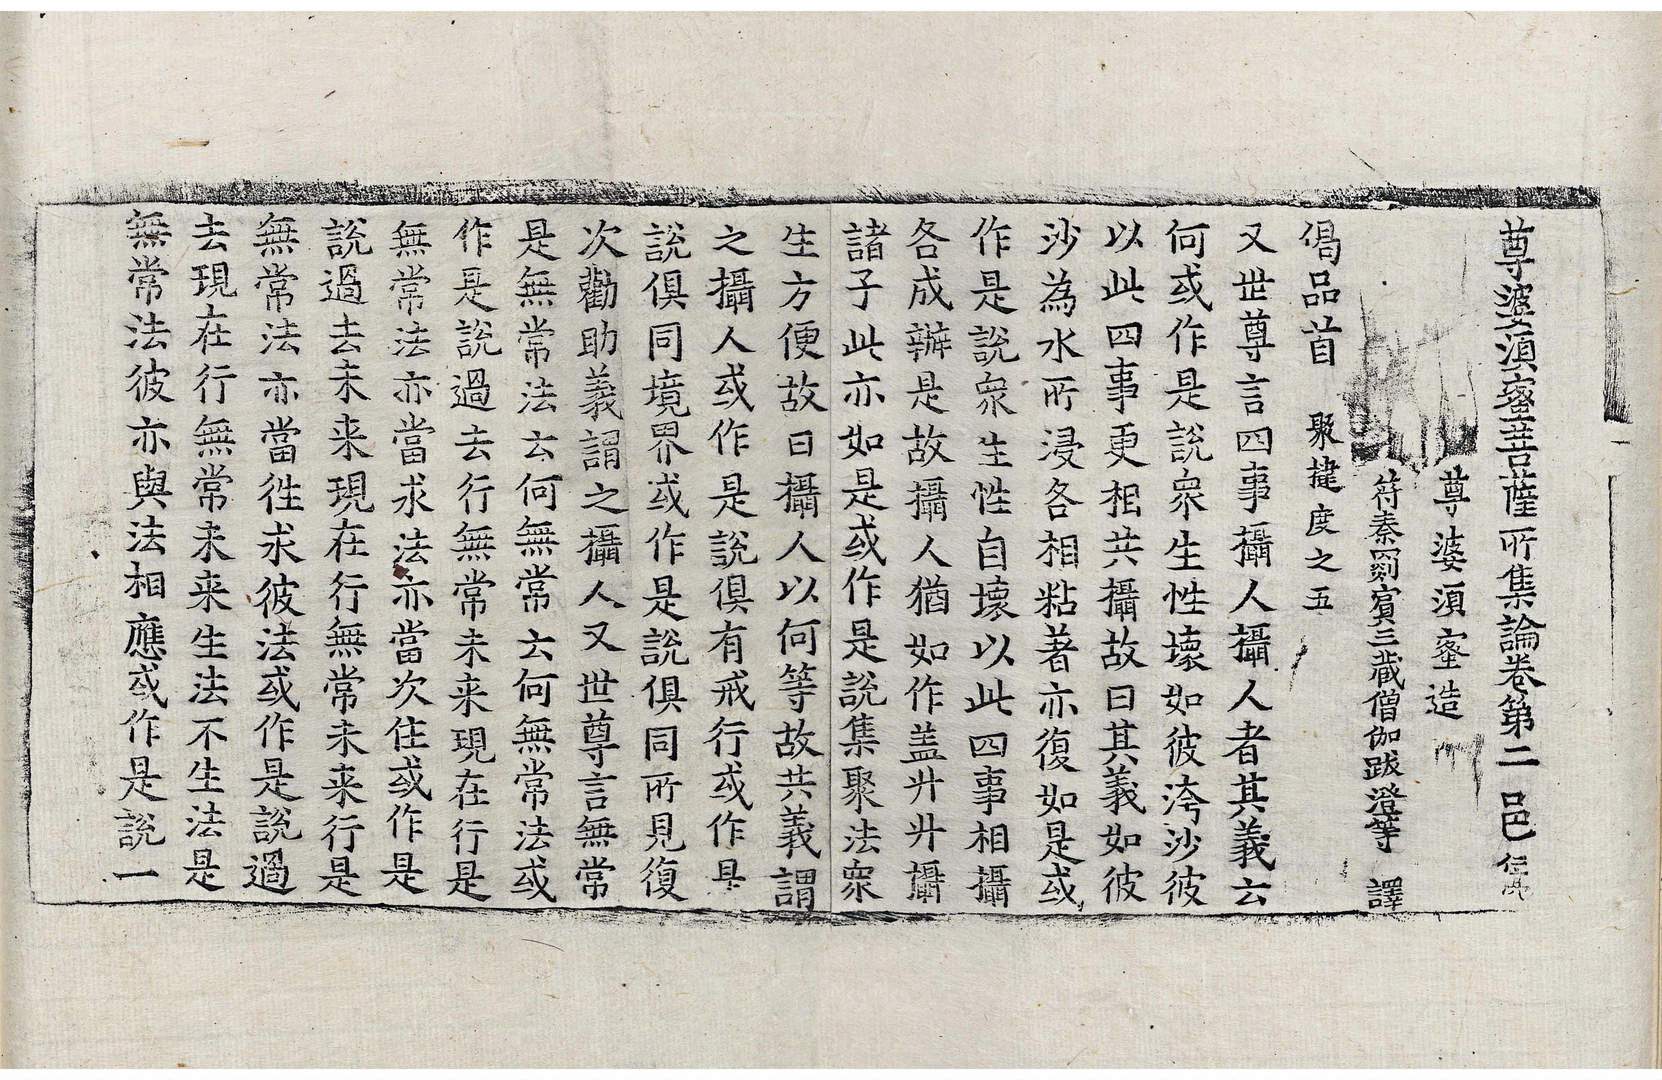 尊婆湏蜜菩薩所集論卷第二 邑
尊婆湏蜜造
符秦罽賓三藏僧伽跋澄等 譯
偈品首 聚揵度之五
又世尊言四事攝人攝人者其義云
何或作是說衆生性壞如彼洿沙彼
以此四事更相共攝故曰其義如彼
沙為水所浸各相粘著亦復如是或
作是說衆生性自壞以此四事相攝
各成辦是故攝人猶如作盖廾廾攝
諸子此亦如是或作是說集聚法衆
生方便故曰攝人以何等故共義謂
之攝人或作是說俱有戒行或作是
說俱同境界或作是說俱同所見復
次勸助義謂之攝人又世尊言無常
是無常法云何無常云何無常法或
作是說過去行無常未来現在行是
無常法亦當求法亦當次住或作是
說過去未来現在行無常未来行是
無常法亦當徃求彼法或作是說過
去現在行無常未来生法不生法是
無常法彼亦與法相應或作是說一